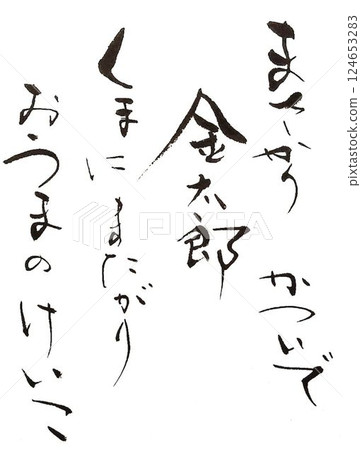 まさかり
かついで
金太郎
くまにまたがり
おうまのけいこ
PIXTA
pixtastock.com - 124653283